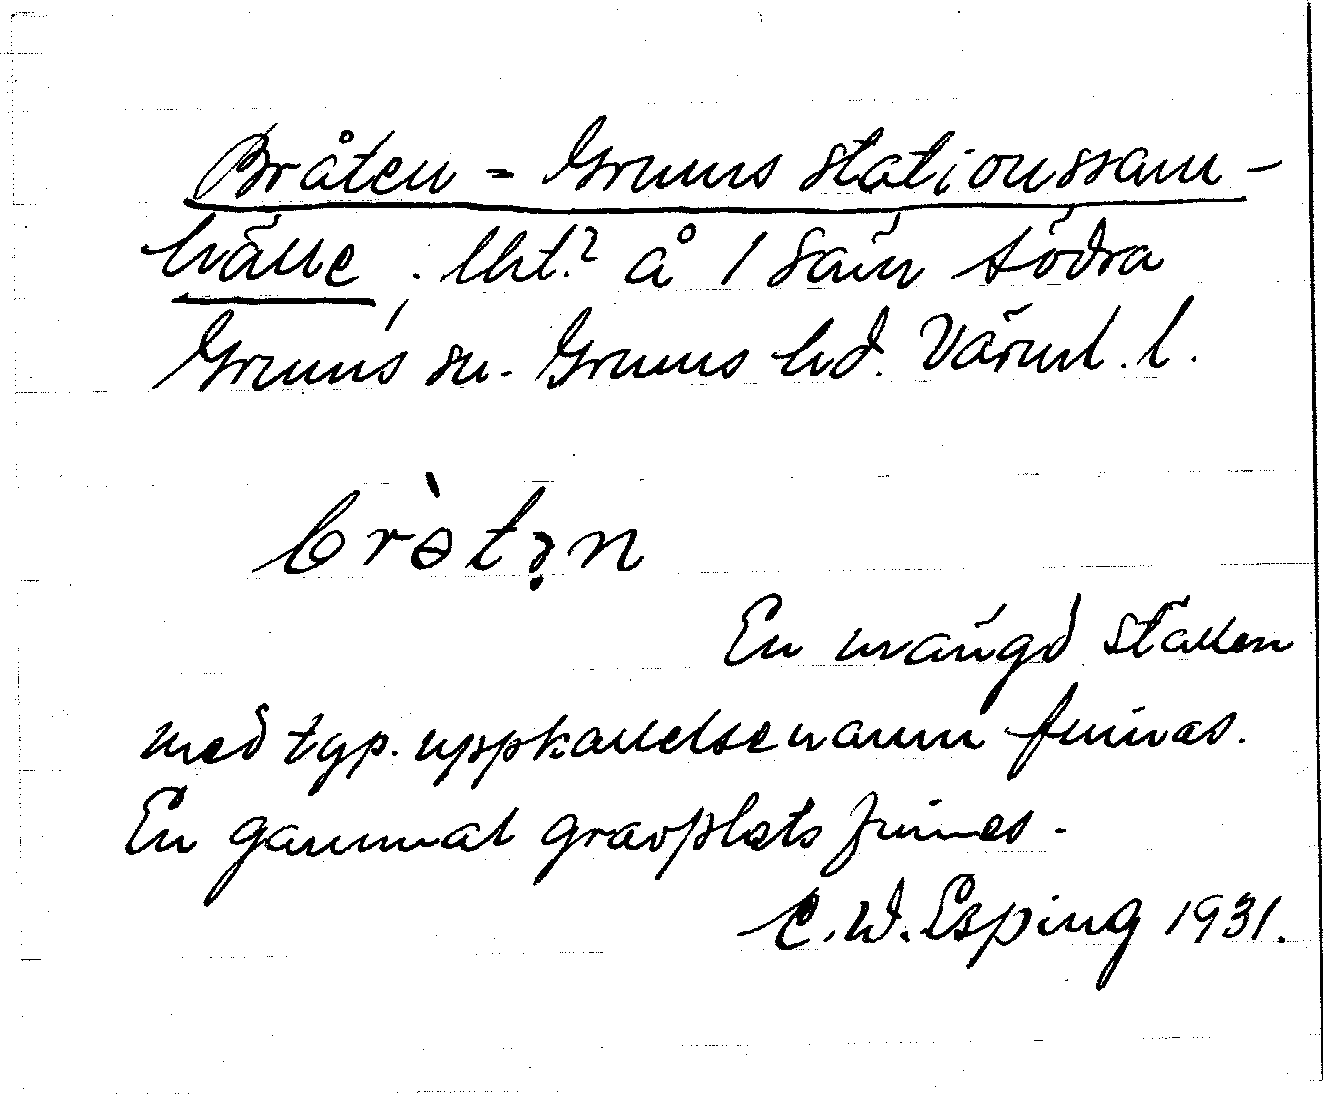 Bråten = Grums stationssam-
hälle, lht.? å 1 Säm södra
Grums sn. Grums hd. Värml. l.
brɵ̀tə̣n
En mängd ställen
med typ. uppkallelsenamn finnas.
En gammal gravplats finnes.
C. W. Esping 1931.